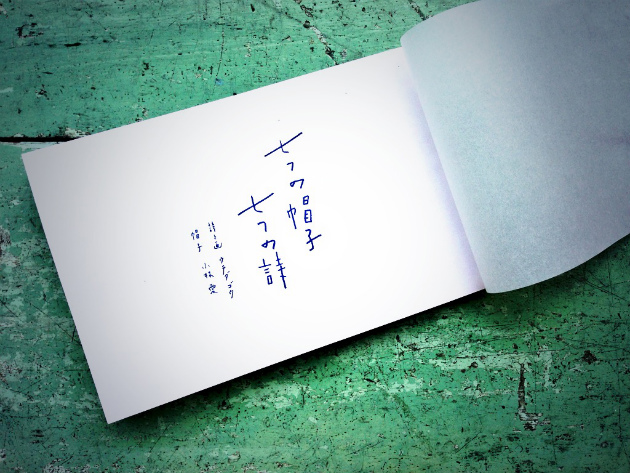 七つの帽子
七つの詩
詩と画 ウチダゴウ
帽子 小林 愛